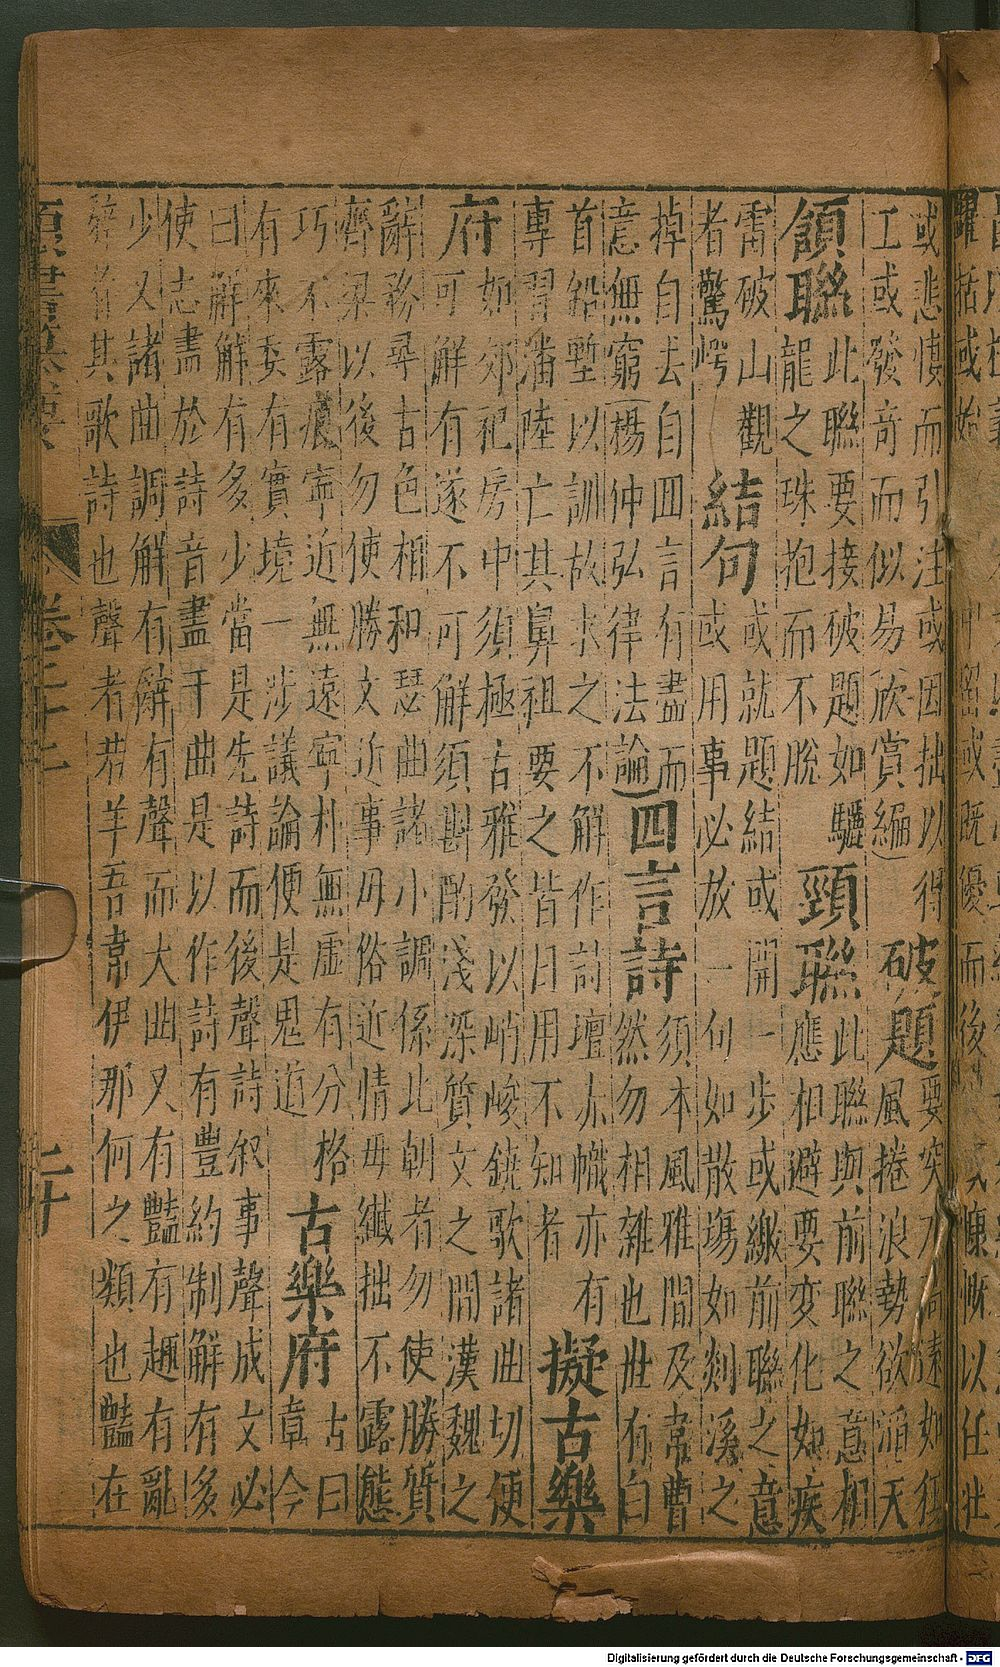 或悲悽而引泣或因拙以得
工或發奇而似易欣賞編
破題
要突兀高遠如狂
風捲浪勢欲滔天
頷聯
此聯要接破題如驪
龍之珠抱而不脫
頸聯
此聯與前聯之意相
應相避要變化如疾
雷破山觀
者驚愕
結句
或就題結或開一步或繳前聯之意
或用事必放一句如散場如剡溪之
掉自去自回言有盡而
意無窮楊仲弘律法論
四言詩
須本風雅間及韋曹
然勿相雜也世有白
首鉛塹以訓故求之不解作詩壇赤幟亦有
專習潘陸亡其鼻祖要之皆日用不知者
擬古樂
府
如郊祀房中須極古雅發以峭峻鐃歌諸曲切便
可解有遂不可解須斟酌淺深質文之間漢魏之
辭務尋古色相和瑟曲諸小調係北朝者勿使勝質
齊梁以後勿使勝文近事毋俗近情毋纖拙不露態
巧不露痕寧近無遠寧朴無虛有分格
有來委有實境一涉議論便是鬼道
古樂府
古曰
章今
曰解解有多少當是先詩而後聲詩叙事聲成文必
使志盡於詩音盡于曲是以作詩有豐約制解有多
少又諸曲調解有辭有聲而大曲又有豔有趨有亂
辭者其歌詩也聲者若羊吾韋伊那何之類也豔在
卷二十二
二十
Digitalisierung gefördert durch die Deutsche Forschungsgemeinschaft - DFG